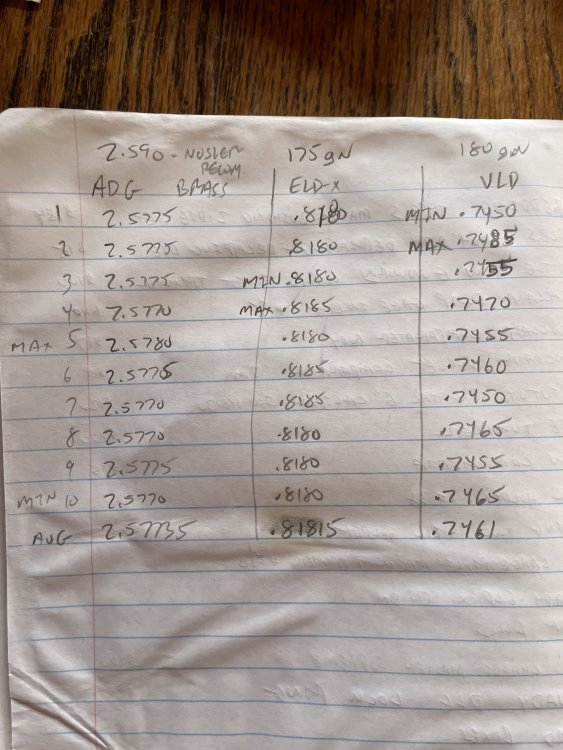 2.590 - NOSLER 175 gN 180 gN
RECOM
ADG BRASS ELD-X VLD
1 2.5775 .8180 MIN .7450
2 2.5775 .8180 MAX .7485
3 2.5775 MIN .8180 .7455
4 2.5770 MAX .8185 .7470
MAX 5 2.5780 .8180 .7455
6 2.5775 .8185 .7460
7 2.5770 .8185 .7450
8 2.5770 .8180 .7465
9 2.5775 .8180 .7455
MIN 10 2.5770 .8180 .7465
AVG 2.57735 .81815 .7461